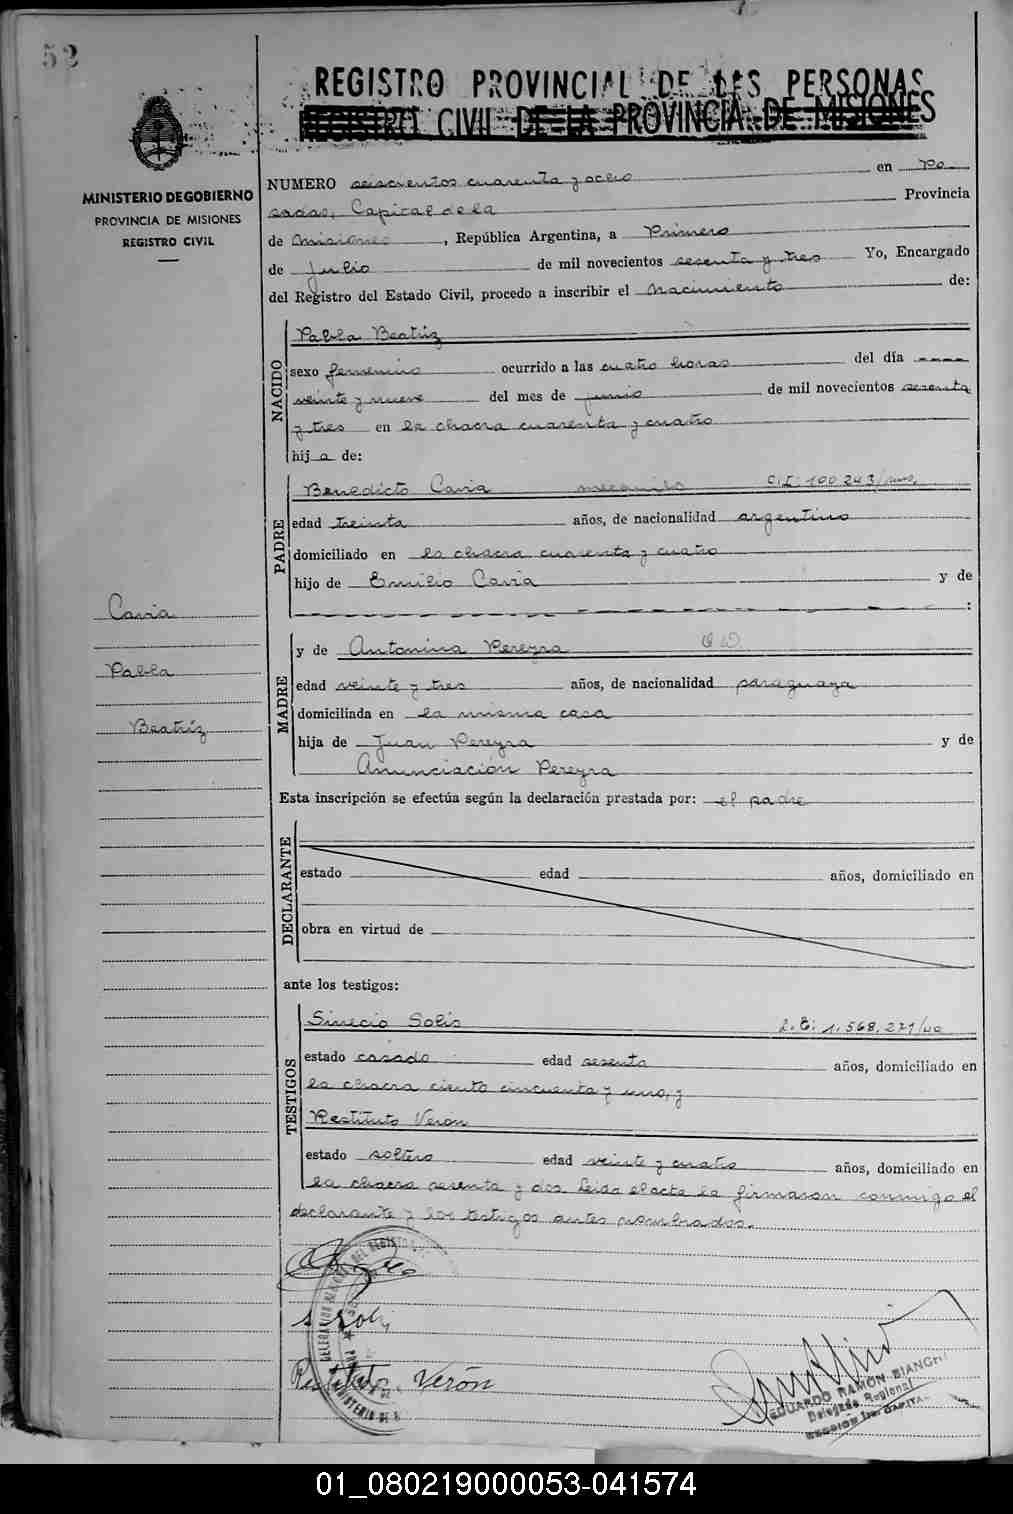 52
REGISTRO PROVINCIAL DE LAS PERSONAS
REGISTRO CIVIL DE LA PROVINCIA DE MISIONES
MINISTERIO DE GOBIERNO
PROVINCIA DE MISIONES
REGISTRO CIVIL
NUMERO seiscientos cuarenta y ocho en Po
sadas, Capital de la Provincia
de Misiones, República Argentina, a Primero
de Julio de mil novecientos sesenta y tres Yo, Encargado
del Registro del Estado Civil, procedo a inscribir el Nacimiento de:
NACIDO
Pabla Beatriz
sexo femenino ocurrido a las cuatro horas del día ----
veinte y nueve del mes de junio de mil novecientos sesenta
y tres en la chacra cuarenta y cuatro
hija de:
PADRE
Benedicto Cavia C.I. 100243/mns.
edad treinta años, de nacionalidad argentino
domiciliado en la chacra cuarenta y cuatro
hijo de Emilio Cavia y de
:
Cavia
Pabla
Beatriz
MADRE
y de Antonina Pereyra
edad veinte y tres años, de nacionalidad paraguaya
domiciliada en la misma casa
hija de Juan Pereyra y de
Anunciación Pereyra
Esta inscripción se efectúa según la declaración prestada por: el padre
DECLARANTE
estado edad años, domiciliado en
obra en virtud de
ante los testigos:
TESTIGOS
Sinecio Solis 1.568.271
estado casado edad sesenta años, domiciliado en
la chacra ciento cincuenta y uno, y
Restituto Veron
estado soltero edad veinte y cuatro años, domiciliado en
la chacra sesenta y dos. Leida el acta la firmaron conmigo el
declarante y los testigos antes nombrados.
S Solis
Restituto Verón
EDUARDO RAMON BIANCHI
Delegado Regional
SECCION 1ra. CAPITAL
01_080219000053-041574